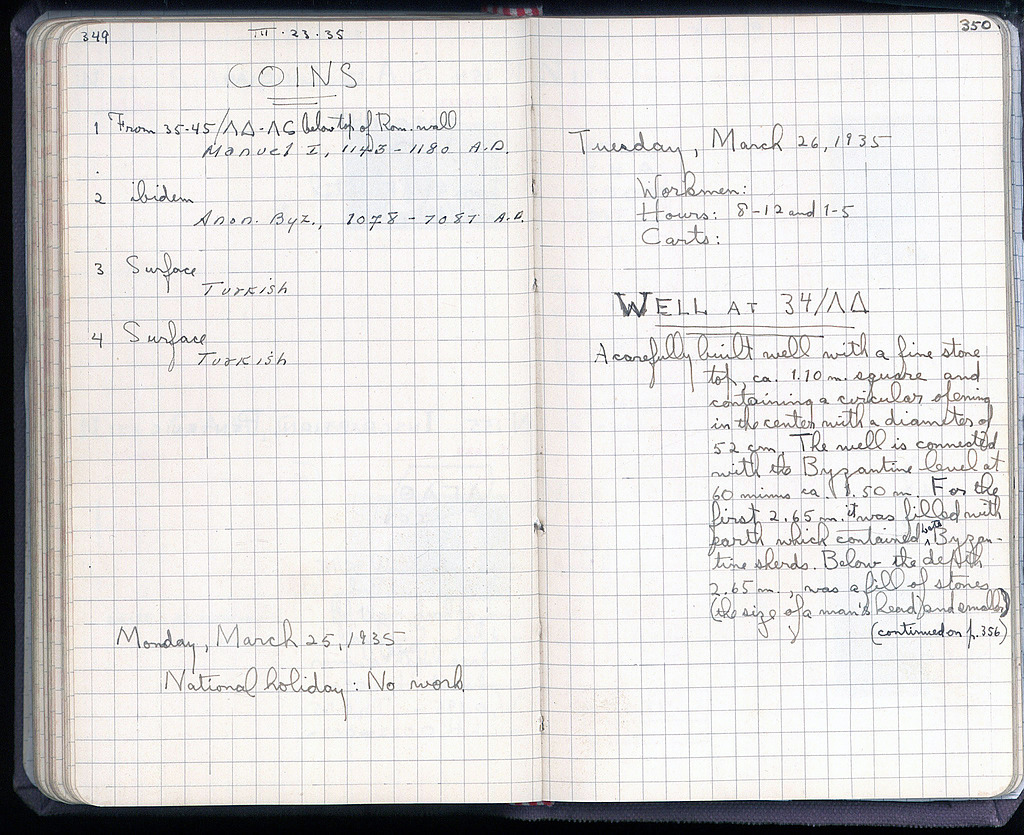 349
III · 23 · 35
COINS
1 From 35-45/ΛΔ-ΛϚ below top of Rom. wall
Manuel I, 1143-1180 A.D.
2 ibidem
Anon. Byz., 1078-1081 A.D.
3 Surface
Turkish
4 Surface
Turkish
Monday, March 25, 1935
National holiday: No work
350
Tuesday, March 26, 1935
Workmen:
Hours: 8-12 and 1-5
Carts:
WELL AT 34/ΛΔ
A carefully built well with a fine stone
top, ca. 1.10 m. square and
containing a circular opening
in the center with a diameter of
52 cm. The well is connected
with the Byzantine level at
60 minus ca. 1.50 m. For the
first 2.65 m. it was filled with
earth which contained late Byzan-
tine sherds. Below the depth
2.65 m., was a fill of stones
(the size of a man's head) and smaller
(continued on p. 356)